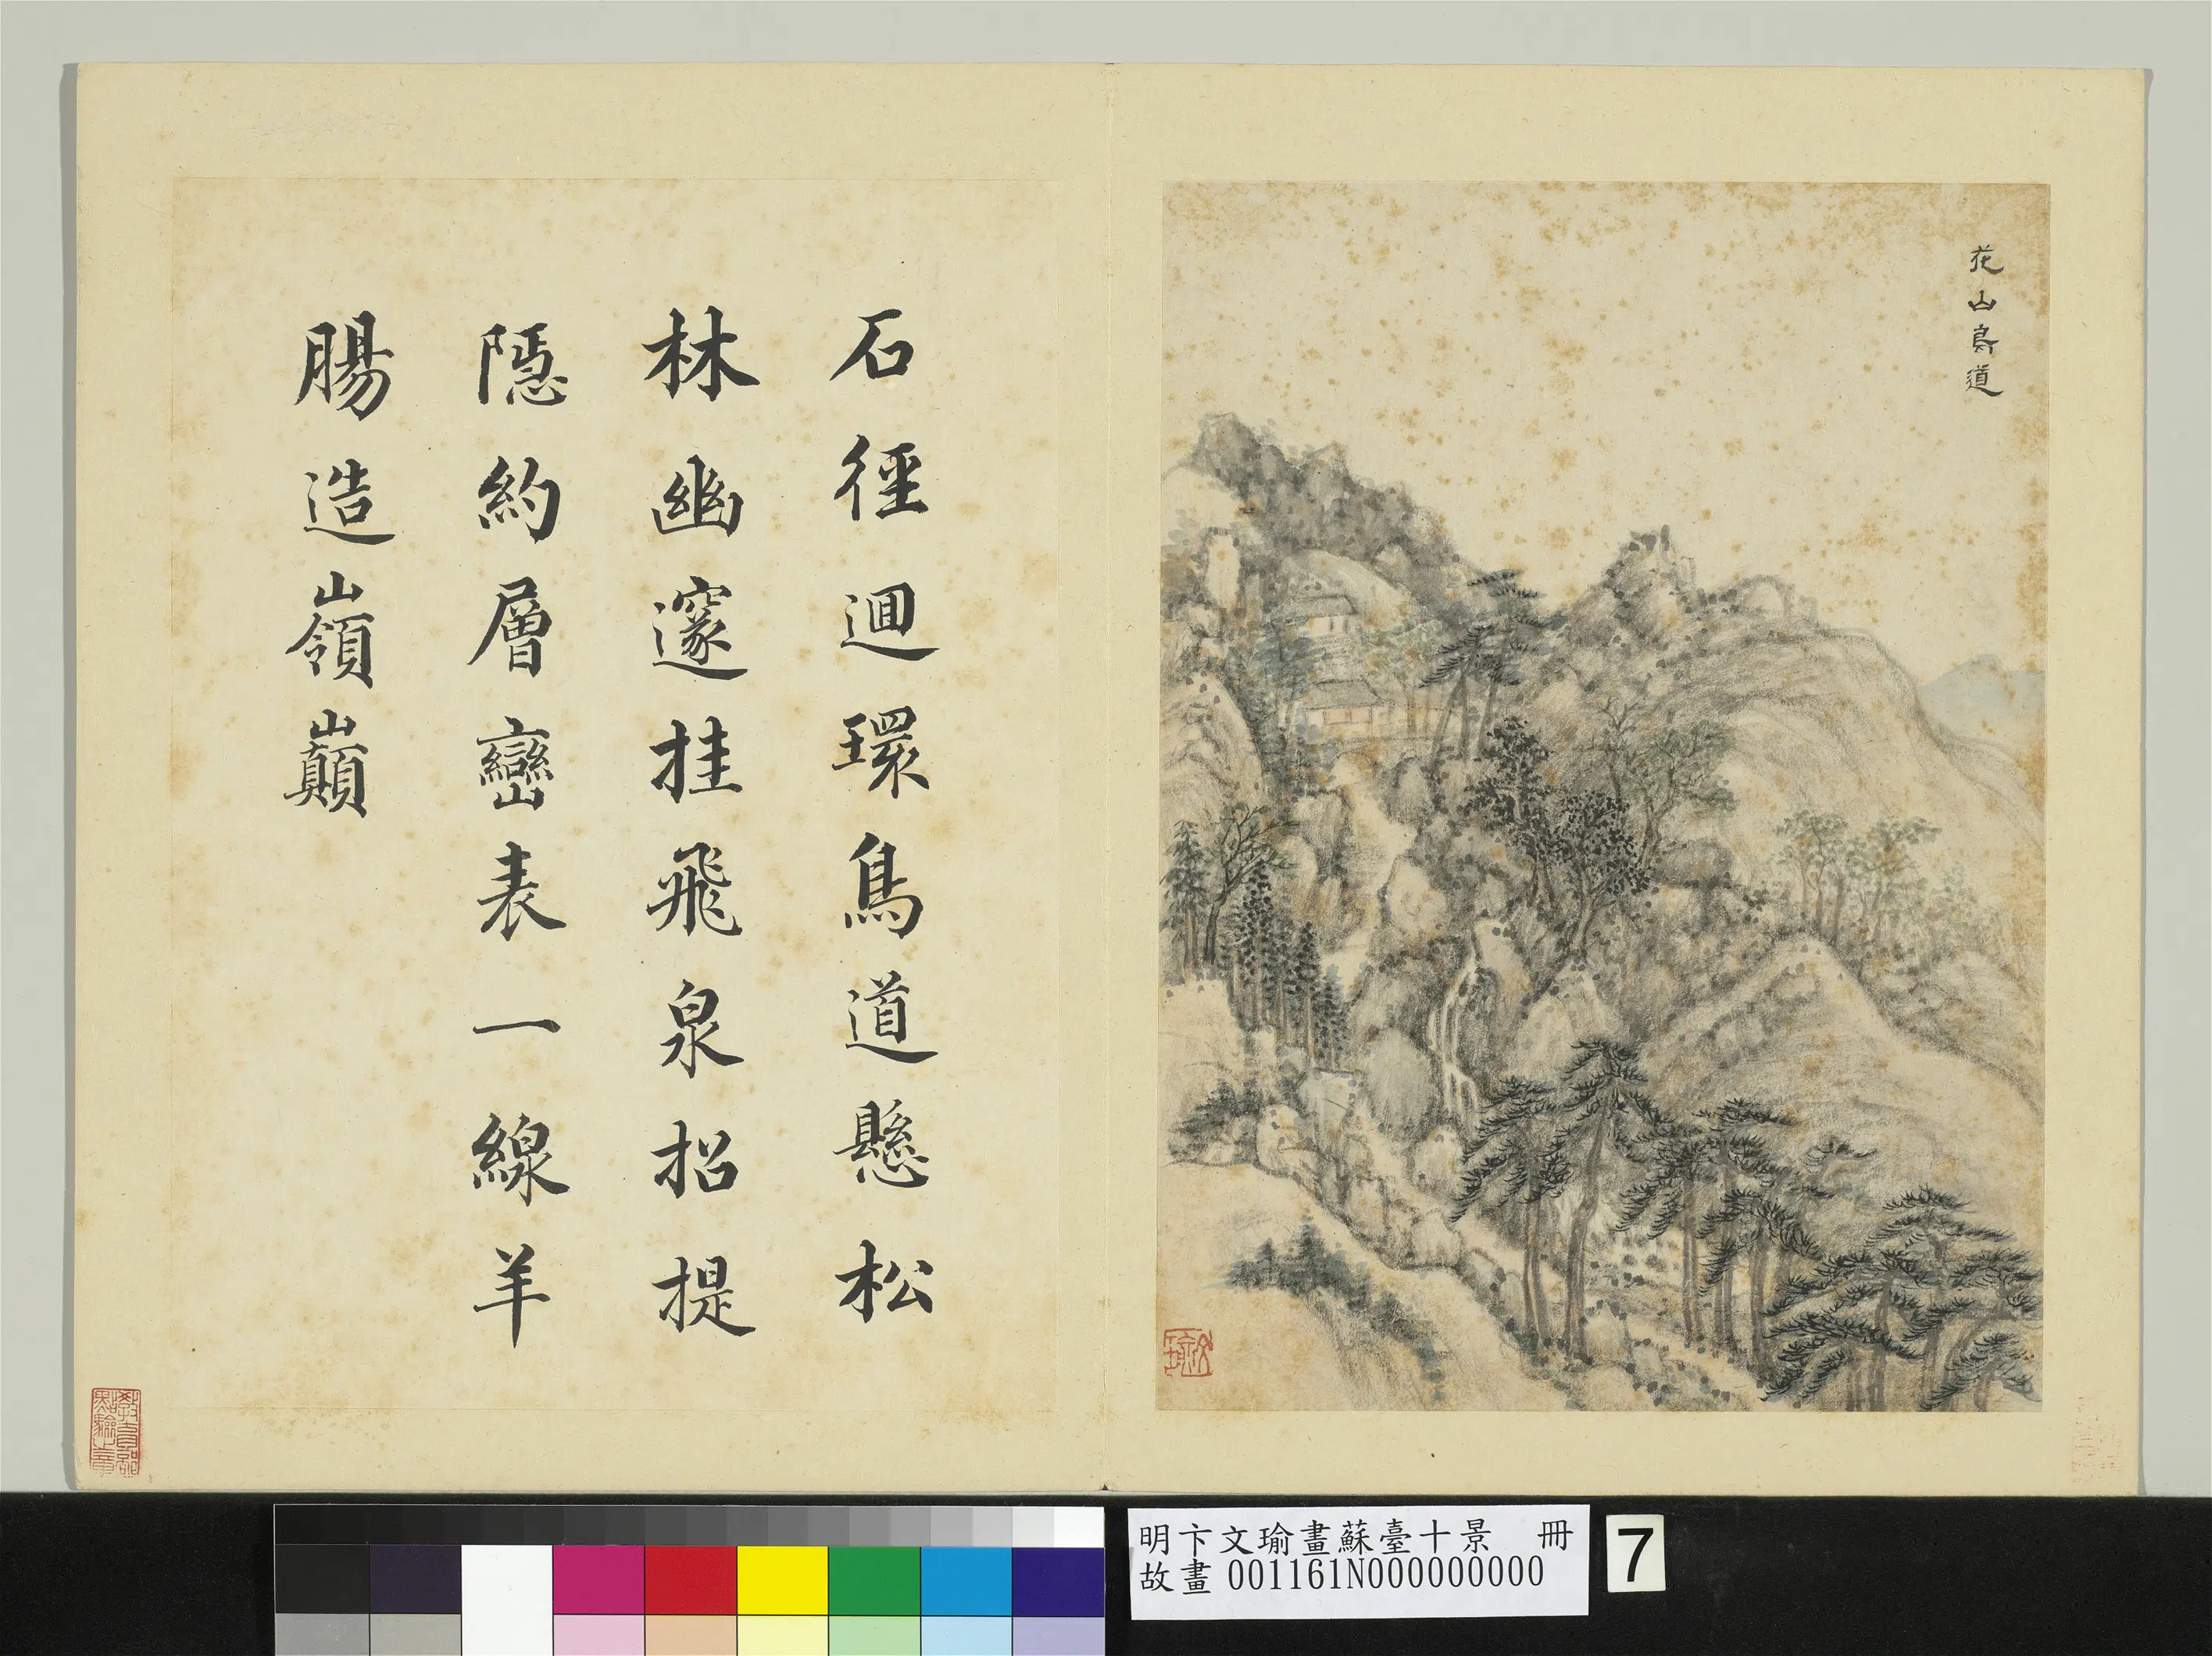 花山鳥道
石徑迴環鳥道懸松
林幽邃挂飛泉招提
隱約層巒表一線羊
腸造巔巔
明卞文瑜畫蘇臺十景 冊
故畫 001161N000000000
7